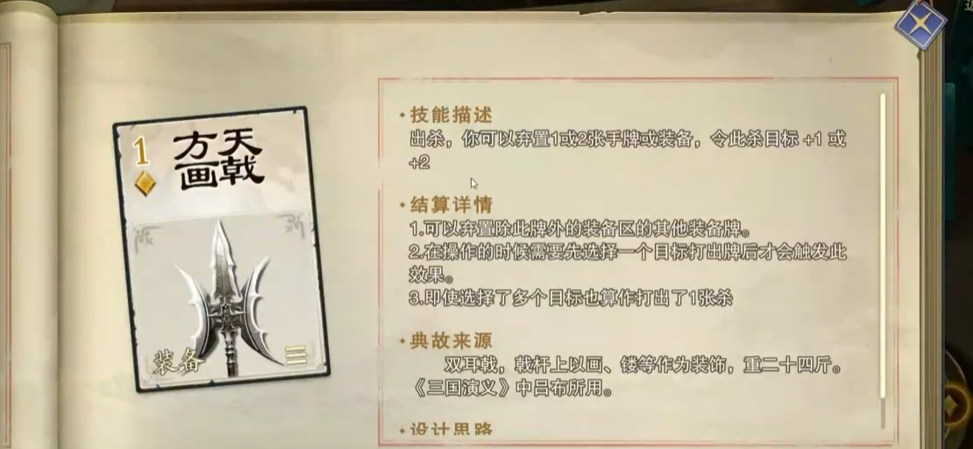 1
方天
画戟
装备
·技能描述
出杀，你可以弃置1或2张手牌或装备，令此杀目标 +1 或
+2
·结算详情
1.可以弃置除此牌外的装备区的其他装备牌。
2.在操作的时候需要先选择一个目标打出牌后才会触发此
效果。
3.即使选择了多个目标也算作打出了1张杀
·典故来源
双耳戟，戟杆上以画、镂等作为装饰，重二十四斤。
《三国演义》中吕布所用。
·设计思路